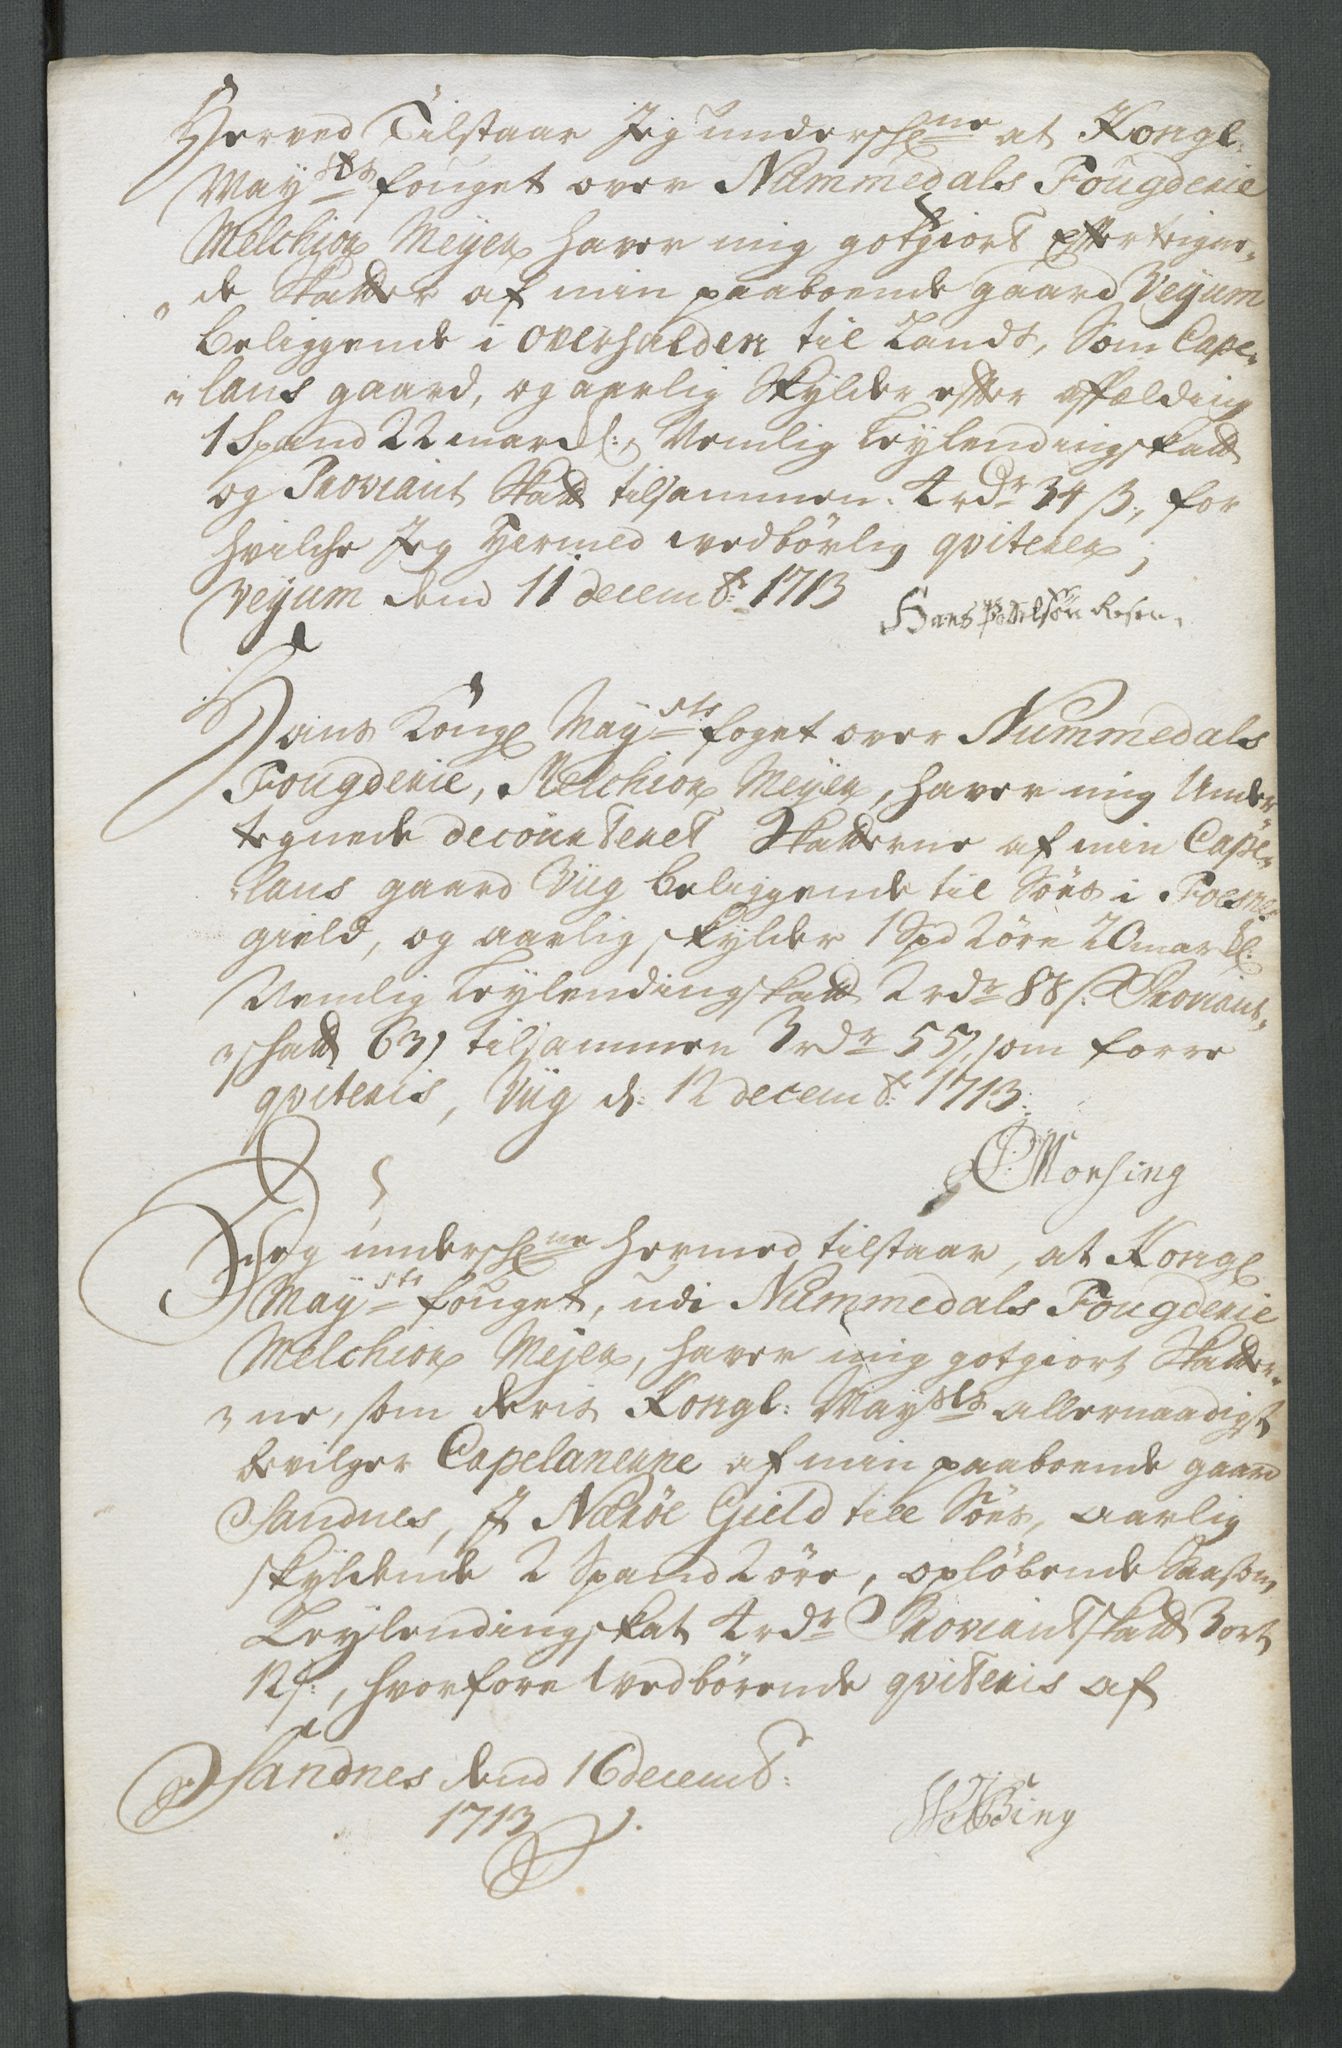 Herved Tilstaar Jeg undersch:ne at Kongl:
May:sts fouget over Nummedals Fougderie
Melchior Meyer haver mig gotgiort effterteigne-
de Skatter af min paaboende gaard Veyum
beliggende i Overhalden til Lands, Som Cape-
lans gaard, og aarlig Skylder efter affælding
1 Spand 22 markl:, Nemlig Leylendingskatt
og Proviant Skatt tilsammen: 4 rdr 34 ß, for
hvilche Jeg Hermed vedbørlig qviterer;
Veyum dend 11 decembr: 1713
Hans Rosen.
Hans Kongl Maysts foget over Nummedals
Fougderie, Melchior Meyer, haver mig Under-
tegnede decourteret Skatterne af min Cape-
lans gaard Viig beliggende til Søes i Foesnes
gield, og aarlig skylder 1 Spd 2 øre 20 markl:
Nemlig Leylendingskatt 2 rdr 88 s: Proviant-
skatt 63 s tilsammen 3 rdr 55 s, som forre
qviteris, Viig d: 12 decembr: 1713:
Morsing
Jeg undersch:ne hermed tilstaar, at Kongl
May:sts fouget, udi Nummedals Fougderie
Melchior Mejer, haver mig gotgiort Skatter-
ne, som deris Kongl: Maysts allernaadigst
bevilger Capelanerne af min paaboende gaard
Sandnes, J Nærøe Gield till Søes, aarlig
skyldende 2 Spand 2 øre, opløbende Saasom,
Leylendingskat 4 rdr Proviantskatt 3 ort
12 s:, hvorfore vedbørende qviteris af
Sandnes dend 16 decembr:
1713